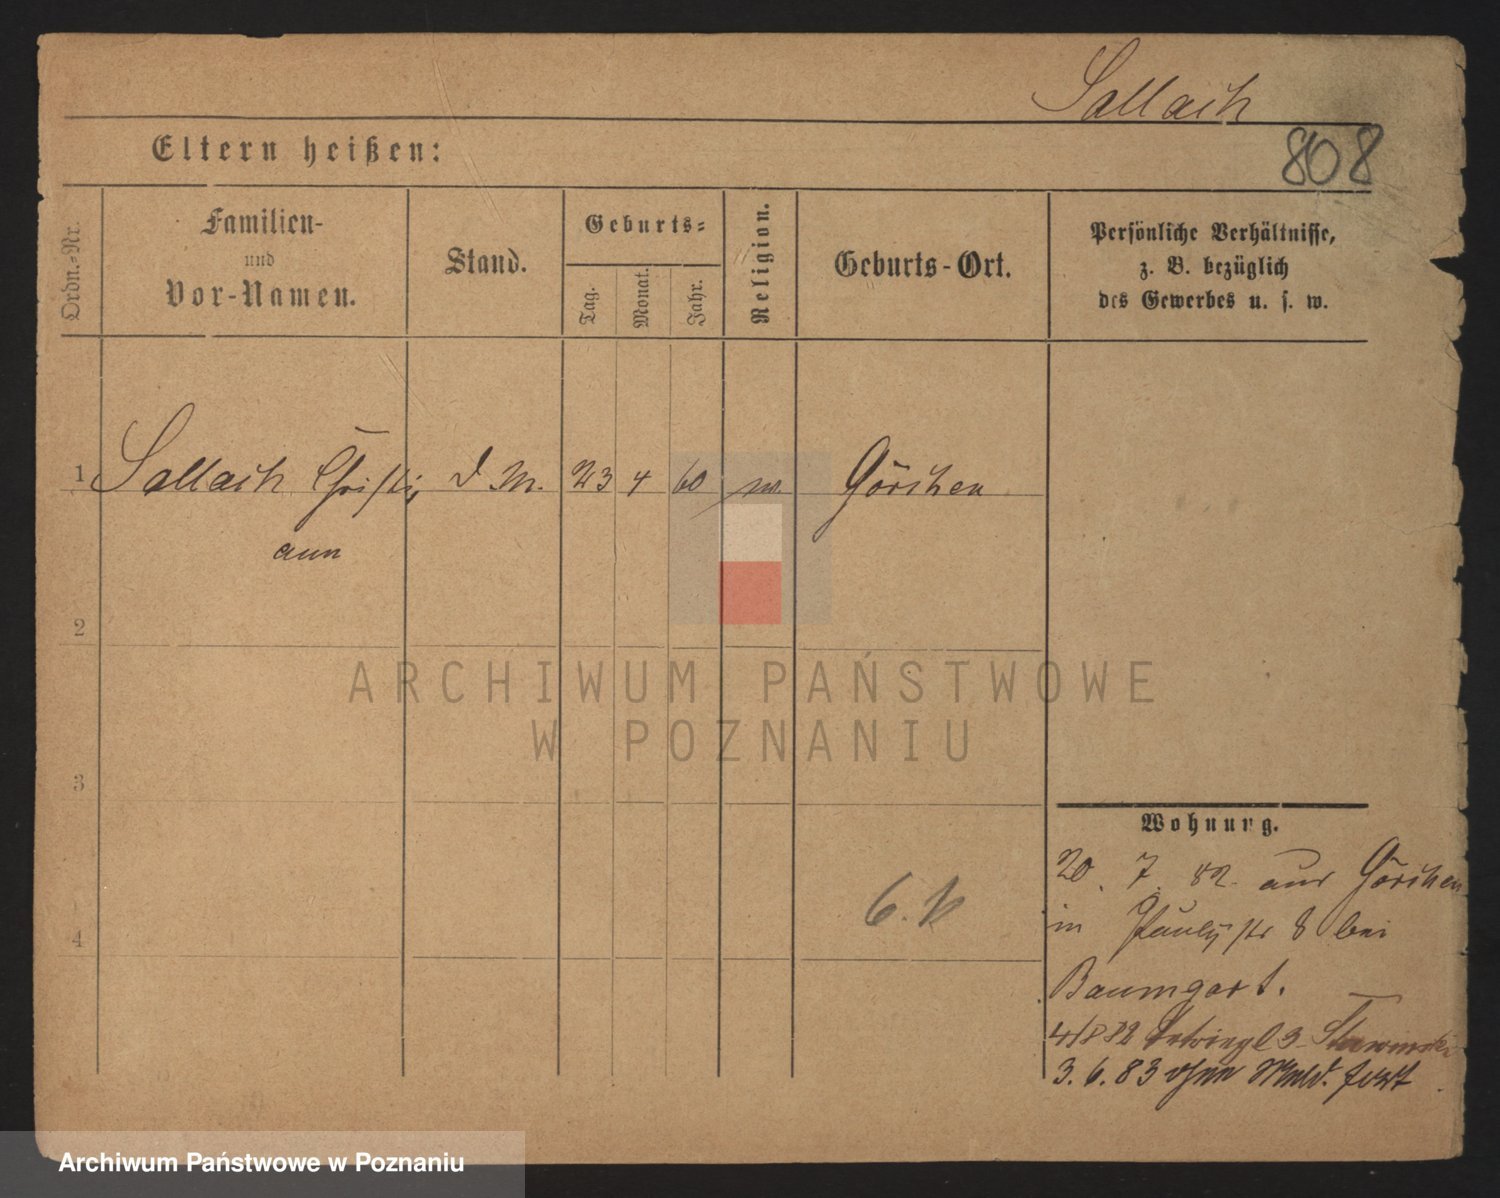 Sallach
808
Eltern heißen:
Ordn.-Nr.
Familien-
und
Vor-Namen.
Stand.
Geburts-
Tag.
Monat.
Jahr.
Religion.
Geburts-Ort.
Persönliche Verhältnisse,
z. B. bezüglich
des Gewerbes u. s. w.
1 Sallach Christi D. M. 23 4 60 Görchen
ann
2
3
4
ARCHIWUM PAŃSTWOWE
W POZNANIU
6.
Wohnung.
20. 7. 82. aus Görchen
in Paulystr 8 bei
Baumgart.
4/8 82 3
3. 6. 83 ohne Meld. fort
Archiwum Państwowe w Poznaniu